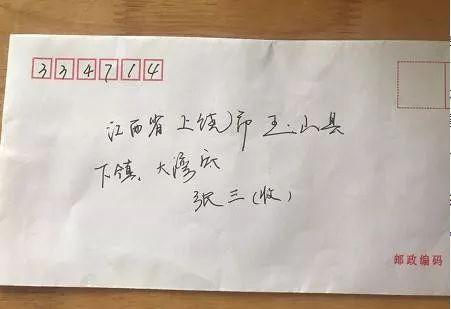 334714
江西省上饶市玉山县
下镇、大湾底
张三(收)
邮政编码